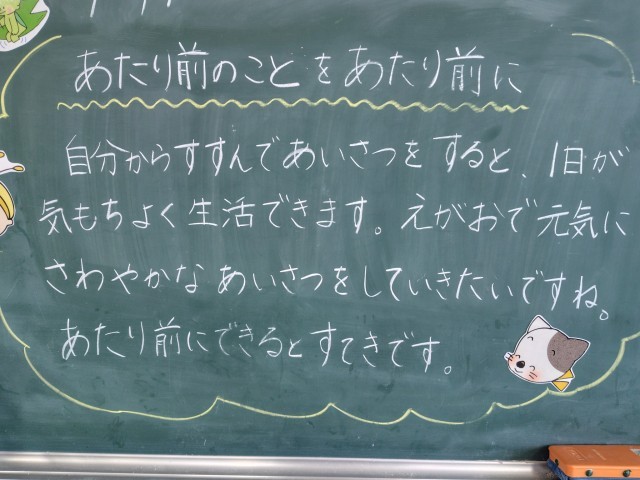 あたり前のことをあたり前に
自分からすすんであいさつをすると、1日が
気もちよく生活できます。えがおで元気に
さわやかなあいさつをしていきたいですね。
あたり前にできるとすてきです。